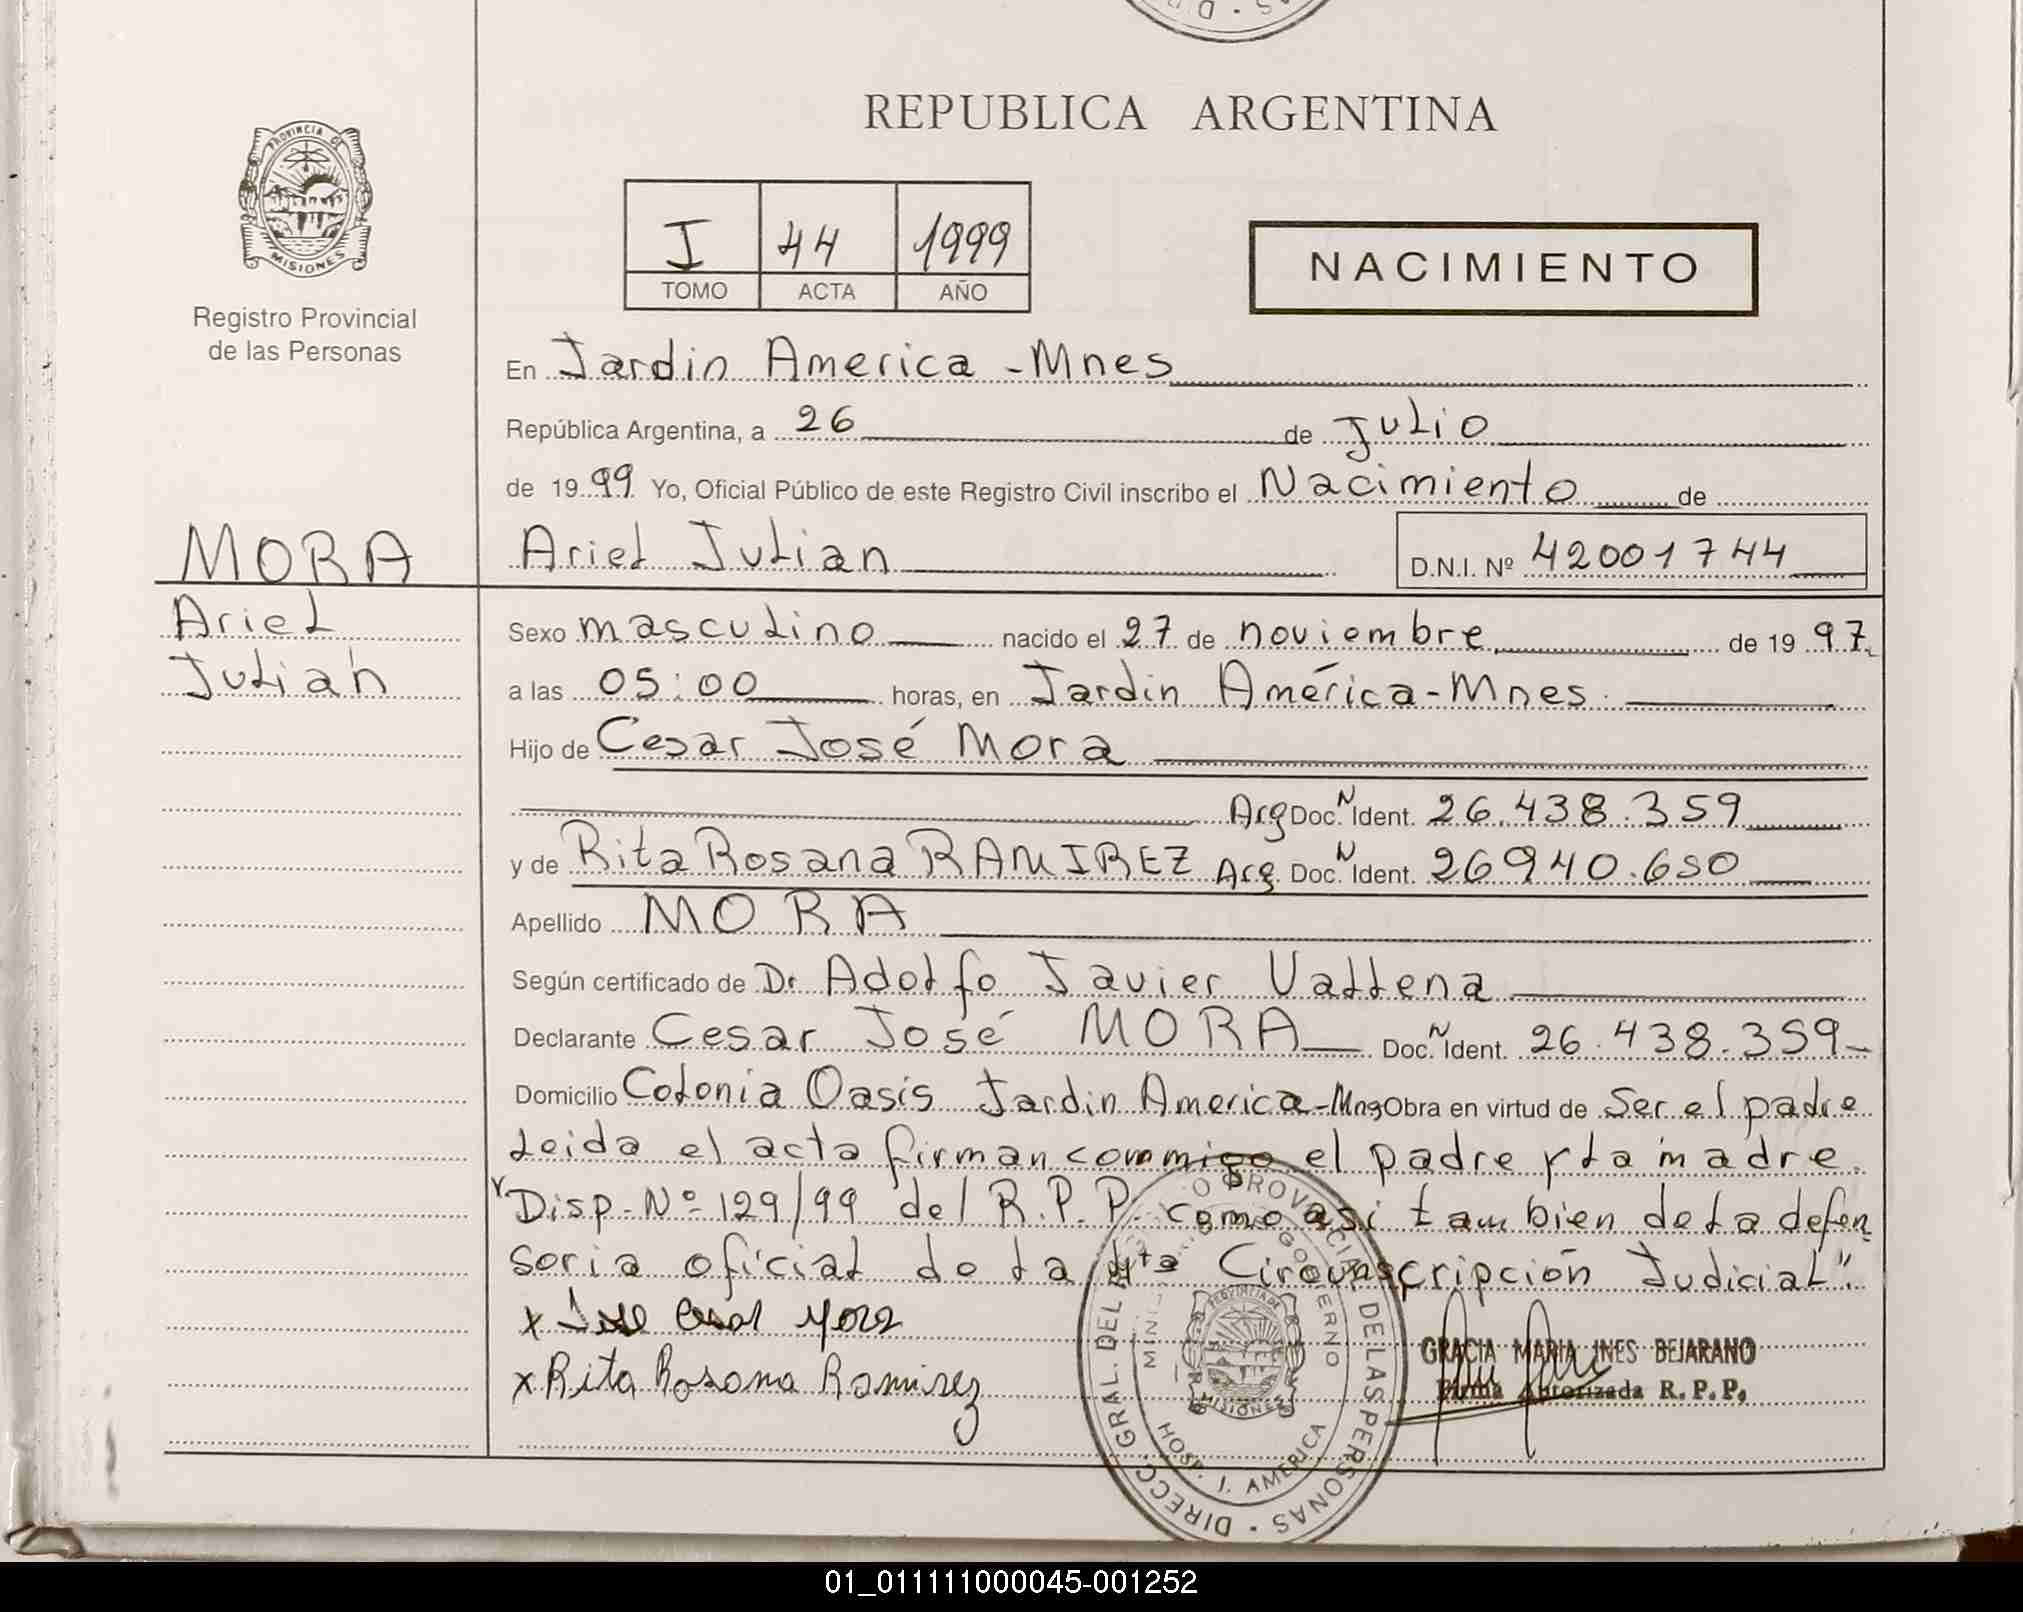 REPUBLICA ARGENTINA
PROVINCIA DE
MISIONES
Registro Provincial
de las Personas
I 44 1999
TOMO ACTA AÑO
NACIMIENTO
En Jardin America - Mnes
República Argentina, a 26 de Julio
de 1999 Yo, Oficial Público de este Registro Civil inscribo el Nacimiento de
MORA
Ariel Julian
D.N.I. Nº 42001744
Ariel
Julian
Sexo masculino nacido el 27 de noviembre de 1997.
a las 05:00 horas, en Jardin América - Mnes.
Hijo de Cesar José Mora
Arg Doc. N Ident. 26.438.359
y de Rita Rosana RAMIREZ Arg. Doc. N Ident. 26940.650
Apellido MORA
Según certificado de Dr Adolfo Javier Vallena
Declarante Cesar José MORA Doc. N Ident. 26.438.359
Domicilio Colonia Oasis Jardin America - Mns Obra en virtud de Ser el padre
Leida el acta firman commigo el padre y la madre.
y Disp. Nº 129/99 del R.P.P. como asi tambien de la defen
soria oficial de la 4ta Circunscripción Judicial".
x Jose Cesar Mora
x Rita Rosana Ramirez
GRACIA MARIA INES BEJARANO
Firma Autorizada R.P.P.
DIRECC. GRAL. DEL REGISTRO PROVINCIAL DE LAS PERSONAS
HOSP. J. AMERICA
PROVINCIA DE
MISIONES
01_011111000045-001252